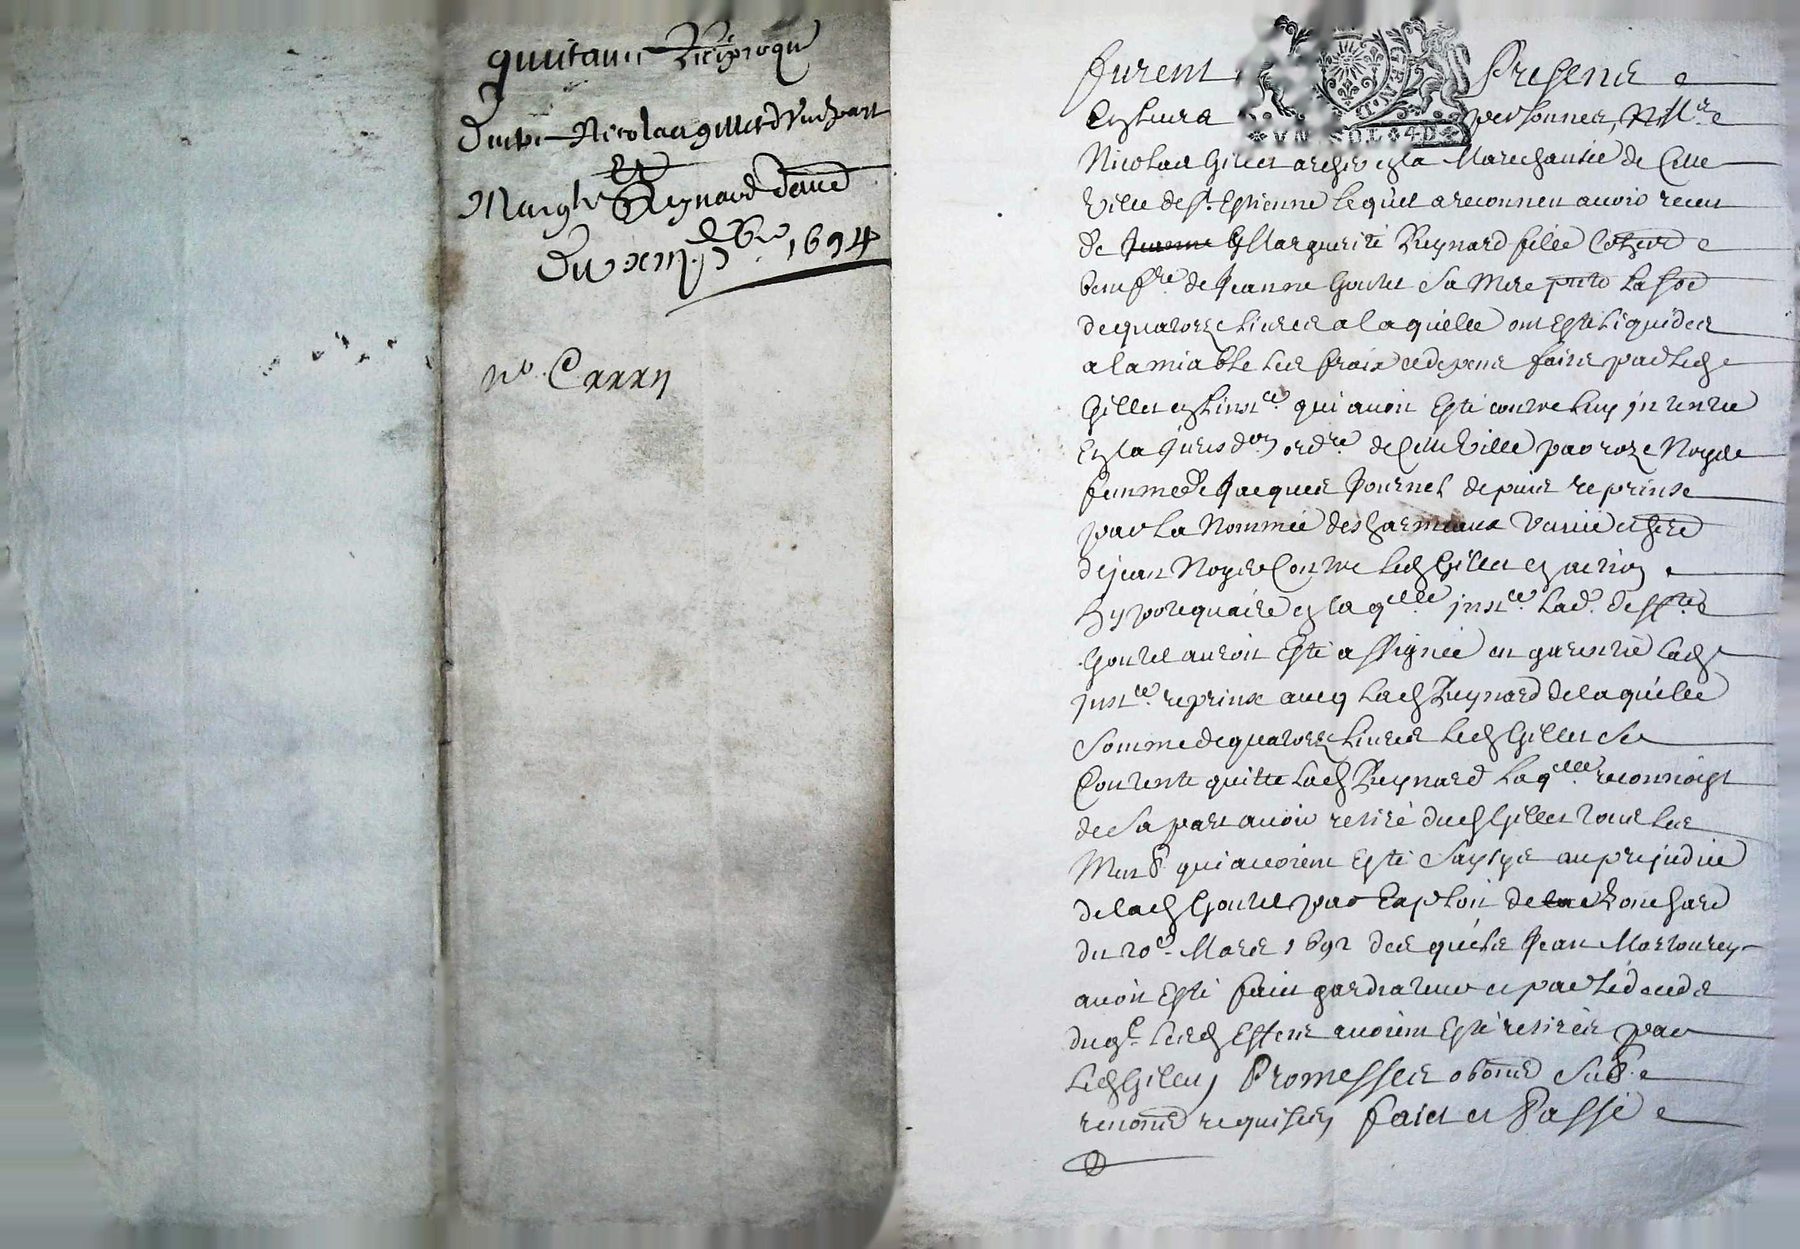 quittance Reciproque
Entre Nicolas gillet d'Une part
Et
Marg.te Reynard d'autre
Du xiij. xbre. 1694
no. Cxxxij
furent Presents
en leurs personnes, Mre
Nicolas Gillet archer en la Marechaussée de Cette
Ville de St. Estienne lequel a reconneu avoir receu
de Jeanne Marguerite Reynard fille et here
benef.re de Jeanne Goutel sa Mere pnte la so͞e
de quatorze livres a laquelle ont esté liquidées
a lamiable les fraix et depens faits par led.
Gillet en linst.ce qui avoit esté contre luy intentée
en la Juris.don ord.re de Cette Ville par roze Noyer
femme de Jacques Journel depuis reprinse
par la Nommée descharmeaux vefve et here
de jean Noyer Contre led. Gillet en action
hypotequaire en la q.elle inst.ce lad. deff.te
Goutel auroit esté assignée en garentie lad.
inst.ce reprinse avecq lad. Reynard de laquelle
somme de quatorze livres led. Gillet se
Contente quitte lad. Reynard laq.elle reconnoist
de sa part avoir retiré dud. Gillet tous les
Meub. qui avoient esté saysys au prejudice
de lad. Goutel par Exploit de la Bouchard
du 20e. Mars 1692 desquels Jean Marcourey
avoit esté faict gardiateur et par le deceds
duq.l lesd. Effets avoient esté retirés par
led. Gillet, Promesses obo͞ns sub.
reno͞ns requises, faict et Passé